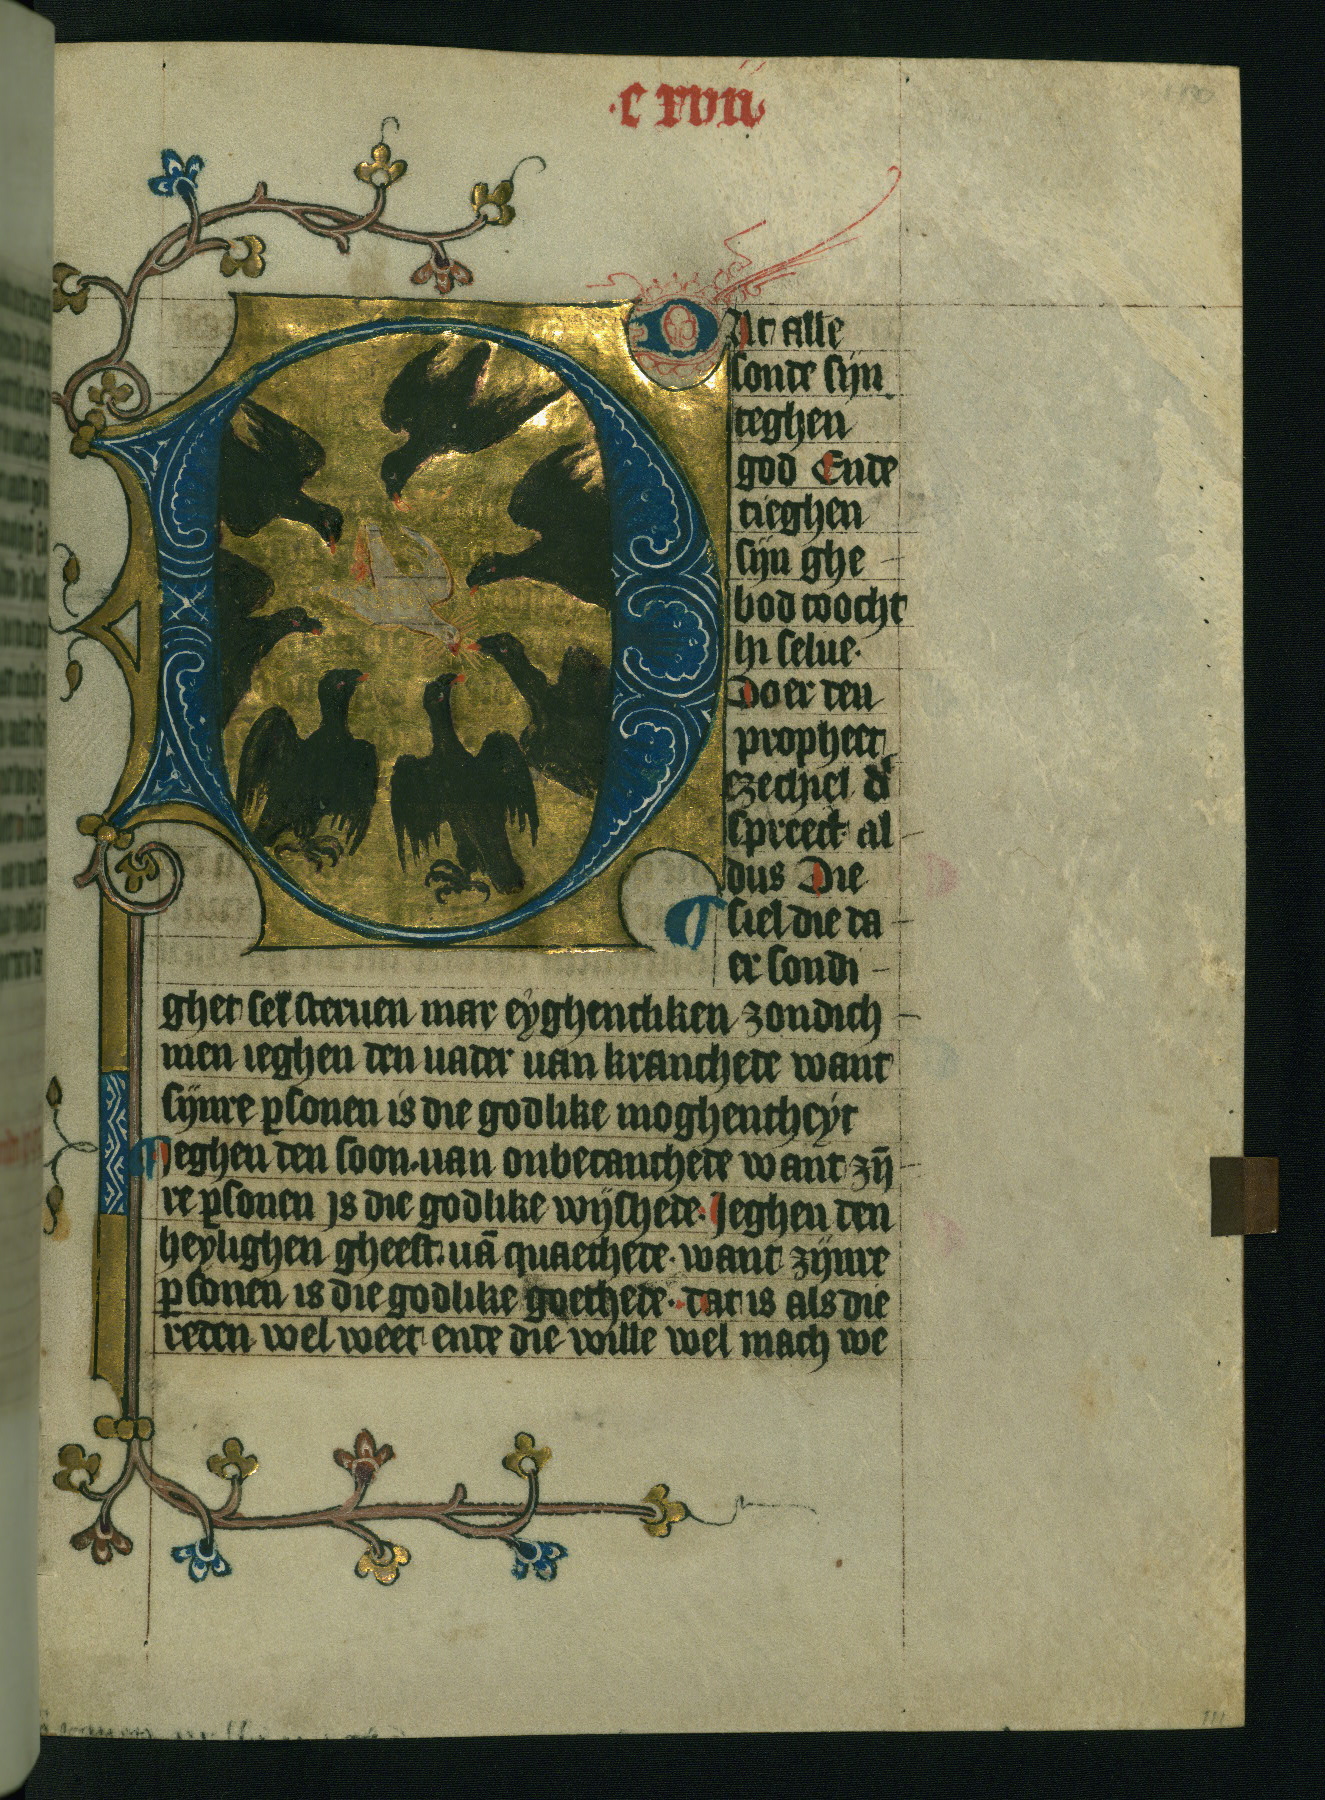 ·c xvii·
Dat alle
sonde sijn
teghen
god Ende
tieghen
sijn ghe
bod woocht
hi selue·
Doer den
propheet
ezechiel d'
spreect al
dus Die
siel die da
er sondi
ghet sel steruen mar eyghentliken zondich
men ieghen den uader uan krancheде want
sijnre psonen is die godlike moghentheyt
Ieghen den soon·uan onbecanthede want zij̄
re psonen is die godlike wijshede· Ieghen den
heylighen gheest·uā quaethede· want zijnre
psonen is die godlike goethede· dat is als die
reden wel weet ende die wille wel mach we
111